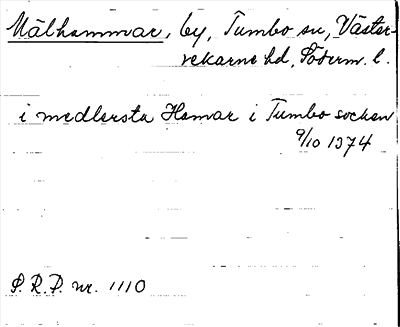 Mälhammar, by, Tumbo sn, Väster-
rekarne hd, Söderm. l.
i medlersta Hamar i Tumbo socken
9/10 1374
S. R. P. nr. 1110